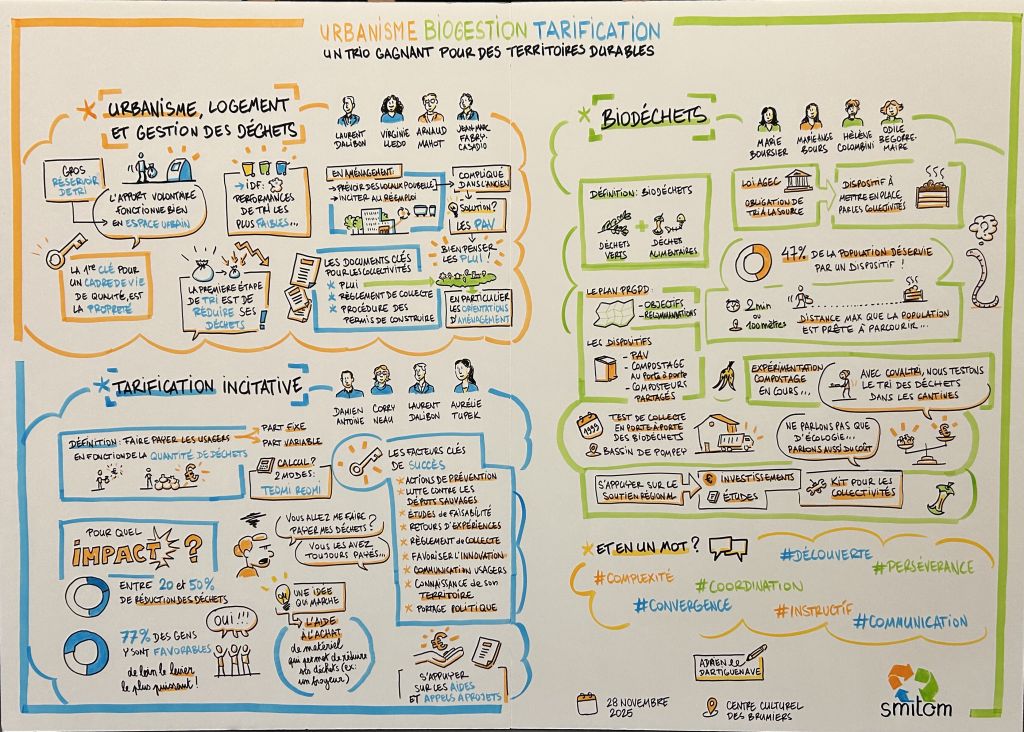 URBANISME BIOGESTION TARIFICATION
UN TRIO GAGNANT POUR DES TERRITOIRES DURABLES
URBANISME, LOGEMENT
ET GESTION DES DÉCHETS
LAURENT
DALIBON
VIRGINIE
LLEDO
ARNAUD
MAHOT
JEAN-MARC
FABRY-
CASADIO
GROS
RÉSERVOIR
DE TRI
L'APPORT VOLONTAIRE
FONCTIONNE BIEN
EN ESPACE URBAIN
→ IDF:
PERFORMANCES
DE TRI LES
PLUS FAIBLES...
EN AMÉNAGEMENT:
→ PRÉVOIR DES LOCAUX POUBELLE
→ INCITER AU RÉEMPLOI
COMPLIQUÉ
DANS L'ANCIEN
SOLUTION?
LES PAV
BIEN PENSER
LES PLUI!
LA 1re CLÉ POUR
UN CADRE DE VIE
DE QUALITÉ, EST
LA PROPRETÉ
LA PREMIÈRE ÉTAPE
DE TRI EST DE
RÉDUIRE SES
DÉCHETS!
LES DOCUMENTS CLÉS
POUR LES COLLECTIVITÉS
PLUI
RÈGLEMENT DE COLLECTE
PROCÉDURE DES
PERMIS DE CONSTRUIRE
EN PARTICULIER
LES ORIENTATIONS
D'AMÉNAGEMENT
TARIFICATION INCITATIVE
DAMIEN
ANTOINE
CORRY
NEAU
LAURENT
DALIBON
AURÉLIE
TUPEK
DÉFINITION: FAIRE PAYER LES USAGERS
EN FONCTION DE LA QUANTITÉ DE DÉCHETS
PART FIXE
PART VARIABLE
CALCUL?
2 MODES:
TEOMI REOMI
LES FACTEURS CLÉS
DE SUCCÈS
ACTIONS DE PRÉVENTION
LUTTE CONTRE LES
DÉPÔTS SAUVAGES
ÉTUDES DE FAISABILITÉ
RETOURS D'EXPÉRIENCES
RÈGLEMENT DE COLLECTE
FAVORISER L'INNOVATION
COMMUNICATION USAGERS
CONNAISSANCE DE SON
TERRITOIRE
PORTAGE POLITIQUE
POUR QUEL
IMPACT ?
VOUS ALLEZ ME FAIRE
PAYER MES DÉCHETS?
VOUS LES AVEZ
TOUJOURS PAYÉS...
ENTRE 20 et 50%
DE RÉDUCTION DES DÉCHETS
77% DES GENS
Y SONT FAVORABLES
OUI!!!
de loin le levier
le plus puissant!
UNE IDÉE
QUI MARCHE
L'AIDE
À L'ACHAT
de matériel
qui permet de réduire
ses déchets (ex:
un broyeur)
S'APPUYER
SUR LES AIDES
ET APPELS À PROJETS
BIODÉCHETS
MARIE
BOURSIER
MARIE-ANGE
BOURS
HÉLÈNE
COLOMBINI
ODILE
BEGORRE-
MAIRE
DÉFINITION: BIODÉCHETS
DÉCHETS
VERTS
+
DÉCHETS
ALIMENTAIRES
LOI AGEC
OBLIGATION DE
TRI À LA SOURCE
DISPOSITIF À
METTRE EN PLACE,
PAR LES COLLECTIVITÉS
47% DE LA POPULATION DÉSERVIE
PAR UN DISPOSITIF!
2 min
ou
100 mètres
DISTANCE MAX QUE LA POPULATION
EST PRÊTE À PARCOURIR...
LE PLAN PRGPD
- OBJECTIFS
- RECOMMANDATIONS
LES DISPOSITIFS
- PAV
- COMPOSTAGE
AU PORTE À PORTE
- COMPOSTEURS
PARTAGÉS
EXPÉRIMENTATION
COMPOSTAGE
EN COURS...
AVEC COVALTRI, NOUS TESTONS
LE TRI DES DÉCHETS
DANS LES CANTINES
1999
TEST DE COLLECTE
EN PORTE-À-PORTE
DES BIODÉCHETS
BASSIN DE POMPEY
NE PARLONS PAS QUE
D'ÉCOLOGIE...
PARLONS AUSSI DU COÛT
S'APPUYER SUR LE
SOUTIEN RÉGIONAL
INVESTISSEMENTS
ÉTUDES
KIT POUR LES
COLLECTIVITÉS
ET EN UN MOT?
#DÉCOUVERTE
#PERSÉVÉRANCE
#COMPLEXITÉ
#COORDINATION
#CONVERGENCE
#INSTRUCTIF
#COMMUNICATION
28 NOVEMBRE
2025
CENTRE CULTUREL
DES BRUMIERS
smitom